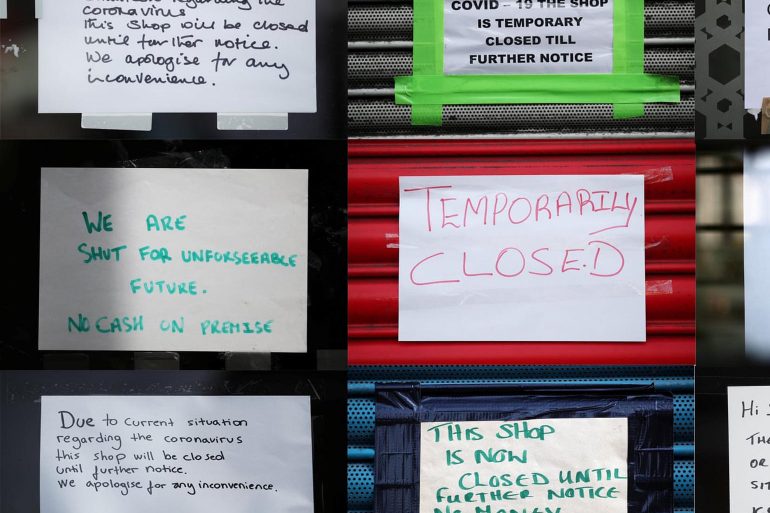 regarding the
coronavirus
this shop will be closed
until further notice.
We apologise for any
inconvenience.
COVID – 19 THE SHOP
IS TEMPORARY
CLOSED TILL
FURTHER NOTICE
WE ARE
SHUT FOR UNFORSEEABLE
FUTURE.
NO CASH ON PREMISE
TEMPORARILY
CLOSED
Due to current situation
regarding the coronavirus
this shop will be closed
until further notice.
We apologise for any inconvenience.
THIS SHOP
IS NOW
CLOSED UNTIL
FURTHER NOTICE
NO MONEY
Hi
OR